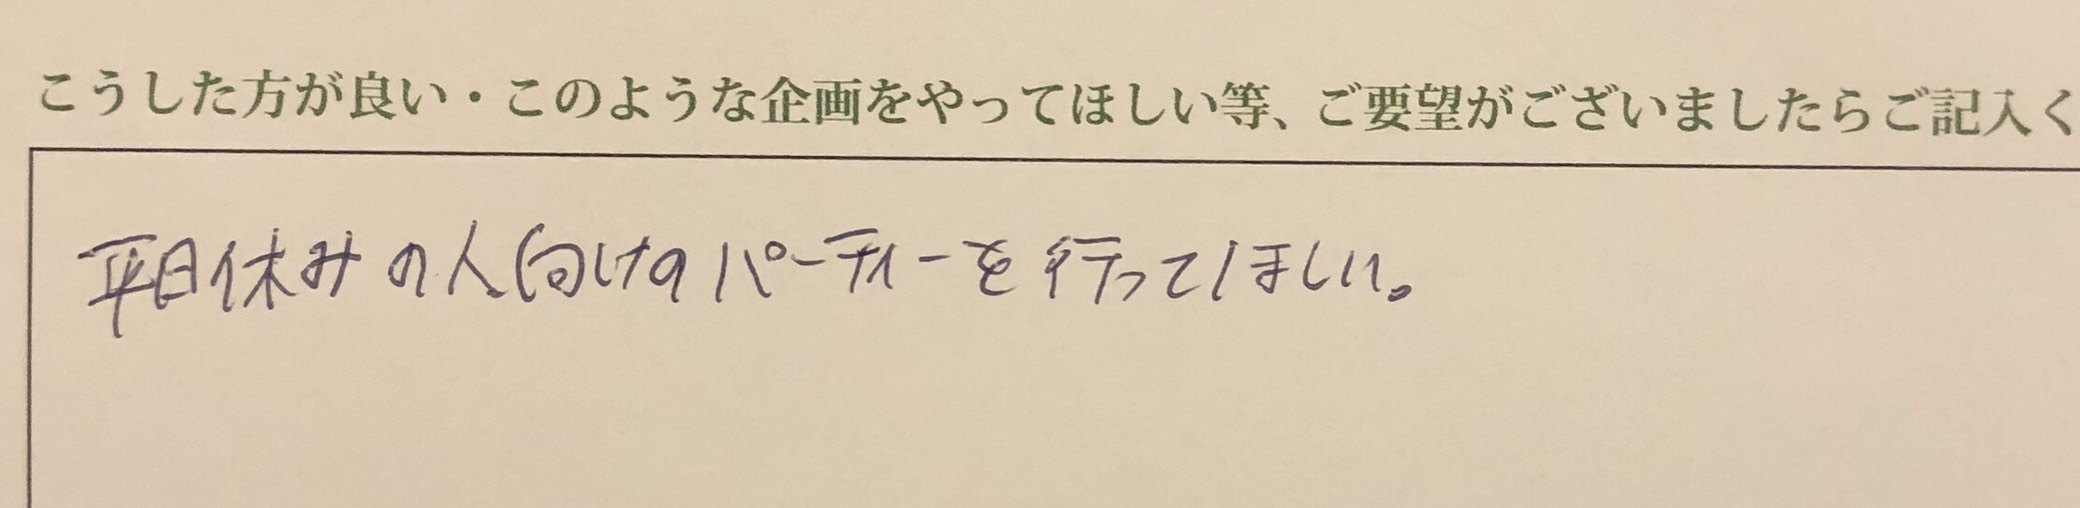 こうした方が良い・このような企画をやってほしい等、ご要望がございましたらご記入く
平日休みの人向けのパーティーを行ってほしい。